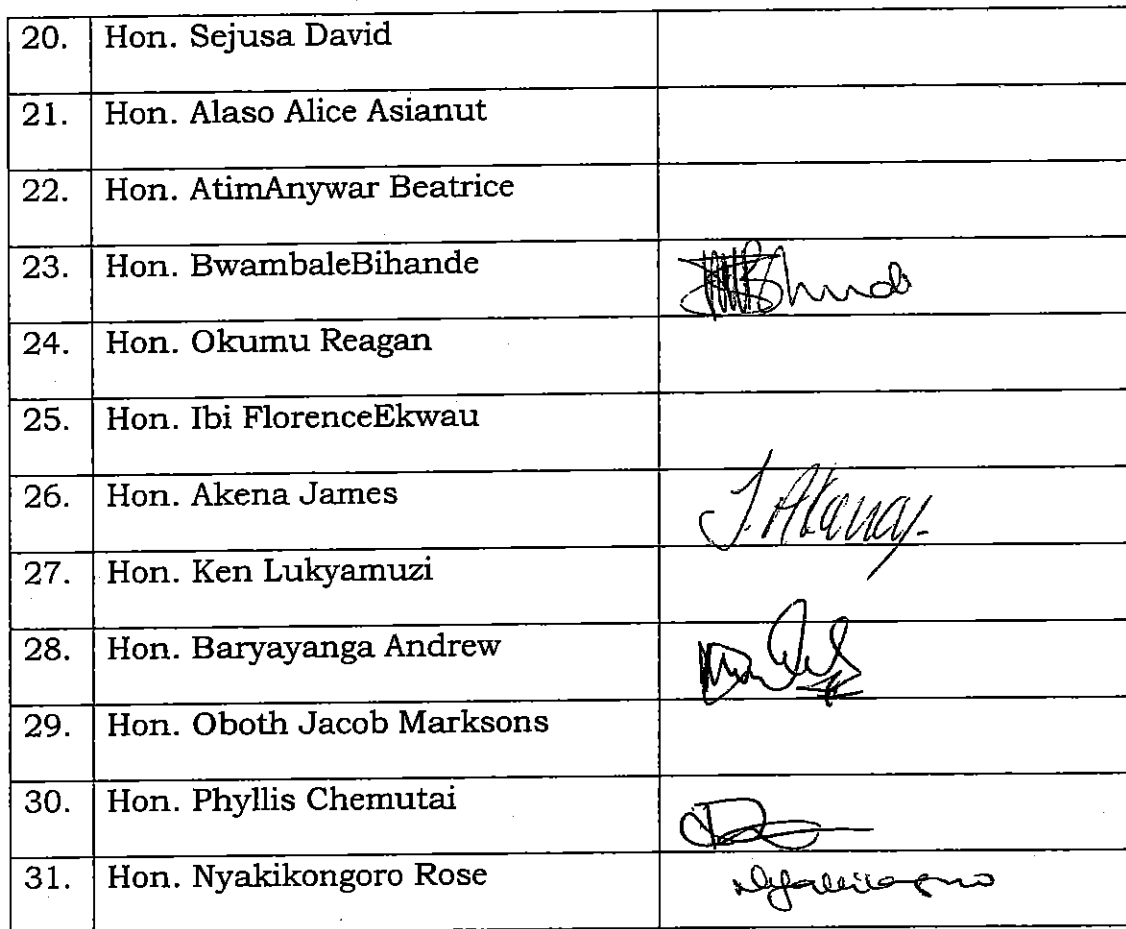 20. Hon. Sejusa David
21. Hon. Alaso Alice Asianut
22. Hon. AtimAnywar Beatrice
23. Hon. BwambaleBihande
24. Hon. Okumu Reagan
25. Hon. Ibi FlorenceEkwau
26. Hon. Akena James J. Akena
27. Hon. Ken Lukyamuzi
28. Hon. Baryayanga Andrew
29. Hon. Oboth Jacob Marksons
30. Hon. Phyllis Chemutai
31. Hon. Nyakikongoro Rose